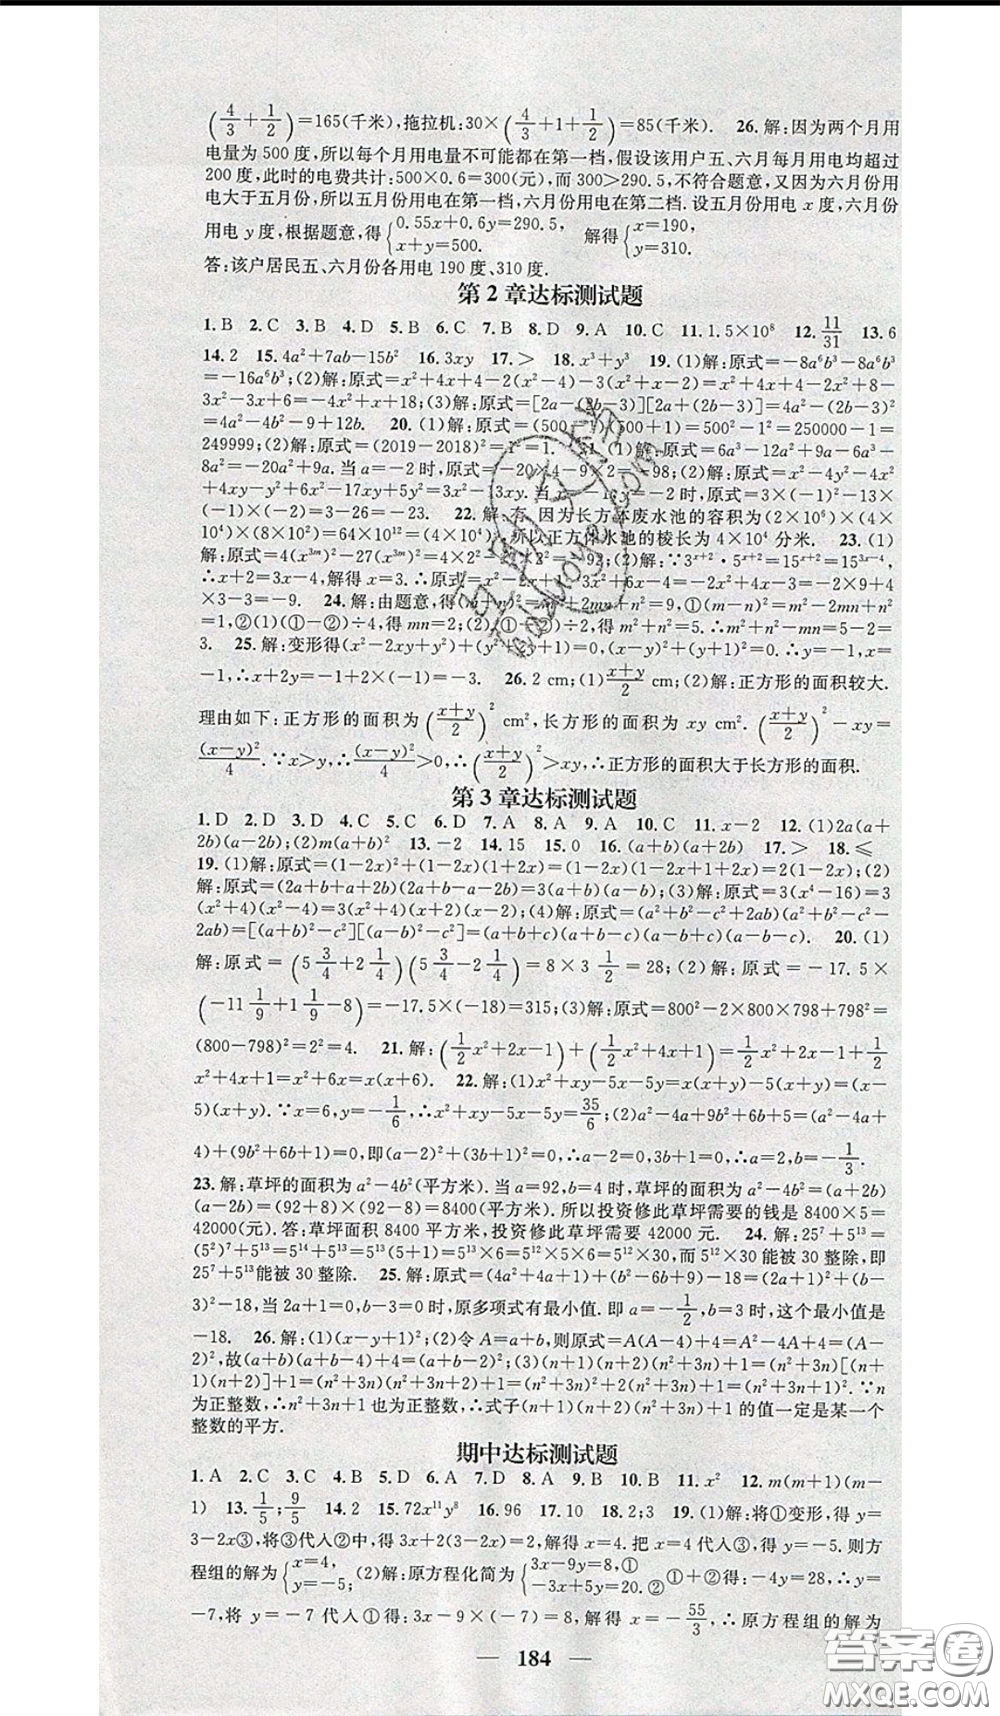 (4/3+1/2)=165(千米),拖拉机:30×(4/3+1+1/2)=85(千米). 26.解:因为两个月用
电量为500度,所以每个月用电量不可能都在第一档,假设该用户五、六月每月用电均超过
200度,此时的电费共计:500×0.6=300(元),而300>290.5,不符合题意,又因为六月份用
电大于五月份,所以五月份用电在第一档,六月份用电在第二档.设五月份用电x度,六月份
用电y度,根据题意,得{0.55x+0.6y=290.5, x+y=500. 解得{x=190, y=310.
答:该户居民五、六月份各用电190度、310度.
第2章达标测试题
1.B 2.C 3.B 4.D 5.B 6.C 7.B 8.D 9.A 10.C 11.1.5×10⁸ 12.11/31 13.6
14.2 15.4a²+7ab-15b² 16.3xy 17.> 18.x³+y³ 19.(1)解:原式=-8a⁶b³-8a⁶b³
=-16a⁶b³;(2)解:原式=x²+4x+4-2(x²+4x-4)-3(x²+x-2)=x²+4x+4-2x²+8-
3x²-3x+6=-4x²+x+18;(3)解:原式=[2a-(2b-3)][2a+(2b-3)]=4a²-(2b-3)²
=4a²-4b²+12b-9. 20.(1)解:原式=(500-1)(500+1)=500²-1²=250000-1=
249999;(2)解:原式=(2019-2018)²=1²=1. 21.(1)解:原式=6a³-12a²+9a-6a³-
8a²=-20a²+9a.当a=-2时,原式=-20×4-9×2=-98;(2)解:原式=x²-4y²-4x²
+4xy-y²+6x²-17xy+5y²=3x²-13xy.当x=-1,y=-2时,原式=3×(-1)²-13×
(-1)×(-2)=3-26=-23. 22.解:有.因为长方体废水池的容积为(2×10⁶)×(4×
10⁴)×(8×10²)=64×10¹²=(4×10⁴)³,所以正方体水池的棱长为4×10⁴分米. 23.(1)
解:原式=4(x³ᵐ)²-27(x³ᵐ)²=4×2²-27×2²=-92;(2)解:∵3ˣ⁺²·5ˣ⁺²=15ˣ⁺²=15³ˣ⁻⁴,
∴x+2=3x-4,解得x=3.∴原式=
×3×3=-9. 24.解:由题意,得(m+n)²=m²+2mn+n²=9,①(m-n)²=m²-2mn+n²
=1,②(1)(①-②)÷4,得mn=2;(2)(①+②)÷2,得m²+n²=5.∴m²+n²-mn=5-2=
3. 25.解:变形得(x²-2xy+y²)+(y²+2y+1)=0,(x-y)²+(y+1)²=0.∴y=-1,x=
-1,∴x+2y=-1+2×(-1)=-3. 26.2 cm;(1)(x+y)/2 cm;(2)解:正方形的面积较大.
理由如下:正方形的面积为((x+y)/2)² cm²,长方形的面积为xy cm². ((x+y)/2)²-xy=
(x-y)²/4.∵x>y,∴(x-y)²/4>0,∴((x+y)/2)²>xy,∴正方形的面积大于长方形的面积.
第3章达标测试题
1.D 2.D 3.D 4.C 5.C 6.D 7.A 8.A 9.A 10.C 11.x-2 12.(1)2a(a+
2b)(a-2b);(2)m(a+b)² 13.-2 14.15 15.0 16.(a+b)(a+2b) 17.> 18.≤
19.(1)解:原式=(1-2x)²+(1-2x)(1+2x)=(1-2x)(1-2x+1+2x)=2(1-2x);(2)
解:原式=(2a+b+a+2b)(2a+b-a-2b)=3(a+b)(a-b);(3)解:原式=3(x⁴-16)=3
(x²+4)(x²-4)=3(x²+4)(x+2)(x-2);(4)解:原式=(a²+b²-c²+2ab)(a²+b²-c²-
2ab)=[(a+b)²-c²][(a-b)²-c²]=(a+b+c)(a+b-c)(a-b+c)(a-b-c). 20.(1)
解:原式=(5 3/4+2 1/4)(5 3/4-2 1/4)=8×3 1/2=28;(2)解:原式=-17.5×
(-11 1/9+1 1/9-8)=-17.5×(-18)=315;(3)解:原式=800²-2×800×798+798²=
(800-798)²=2²=4. 21.解:(1/2x²+2x-1)+(1/2x²+4x+1)=1/2x²+2x-1+1/2
x²+4x+1=x²+6x=x(x+6). 22.解:(1)x²+xy-5x-5y=x(x+y)-5(x+y)=(x-
5)(x+y).∵x=6,y=-1/6,∴x²+xy-5x-5y=35/6;(2)a²-4a+9b²+6b+5=(a²-4a+
4)+(9b²+6b+1)=0,即(a-2)²+(3b+1)²=0,∴a-2=0,3b+1=0,∴a=2,b=-1/3.
23.解:草坪的面积为a²-4b²(平方米).当a=92,b=4时,草坪的面积a²-4b²=(a+2b)
(a-2b)=(92+8)×(92-8)=8400(平方米).所以投资修此草坪需要的钱是8400×5=
42000(元).答:草坪面积8400平方米,投资修此草坪需要42000元. 24.解:25⁷+5¹³=
(5²)⁷+5¹³=5¹⁴+5¹³=5¹³×(5+1)=5¹³×6=5¹²×5×6=5¹²×30,而5¹²×30能被30整除,即
25⁷+5¹³能被30整除. 25.解:原式=(4a²+4a+1)+(b²-6b+9)-18=(2a+1)²+(b-
3)²-18,当2a+1=0,b-3=0时,原多项式有最小值.即a=-1/2,b=3时,这个最小值是
-18. 26.解:(1)(x-y+1)²;(2)令A=a+b,则原式=A(A-4)+4=A²-4A+4=(A-
2)²,故(a+b)(a+b-4)+4=(a+b-2)²;(3)(n+1)(n+2)(n²+3n)+1=(n²+3n)[(n+
1)(n+2)]+1=(n²+3n)(n²+3n+2)+1=(n²+3n)²+2(n²+3n)+1=(n²+3n+1)².∵n
为正整数,∴n²+3n+1也为正整数,∴式子(n+1)(n+2)(n²+3n)+1的值一定是某一个
整数的平方.
期中达标测试题
1.A 2.C 3.C 4.B 5.D 6.A 7.D 8.C 9.B 10.B 11.x² 12.m(m+1)(m-
1) 13.1/5;9/5 14.2 15.72x¹¹y⁸ 16.96 17.10 18.2;3 19.(1)解:将①变形,得y=
3-2x③,将③代入②中,得3x+2(3-2x)=2,解得x=4.把x=4代入③,得y=-5.则方
程组的解为{x=4, y=-5; (2)解:原方程化简为{3x-9y=8,① -3x+5y=20.② ①+②得:-4y=28,∴y=
-7,将y=-7代入①得:3x-9×(-7)=8,解得x=-55/3,∴原方程组的解为
184
答案卷
MXQE.COM